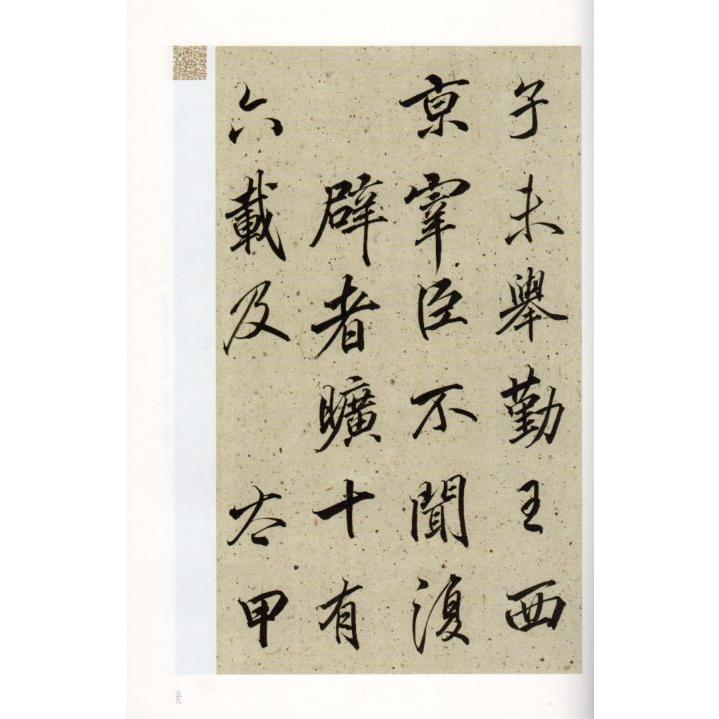 子未舉勤王西
京宰臣不聞復
辟者曠十有
六載及 太甲
五九